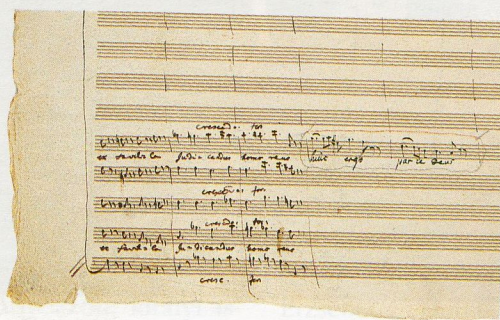 crescendo: for
ex favilla Judicandus homo reus huic ergo parce Deus
crescendo: for
crescendo: for:
ex favilla Judicandus homo reus
cresc. for